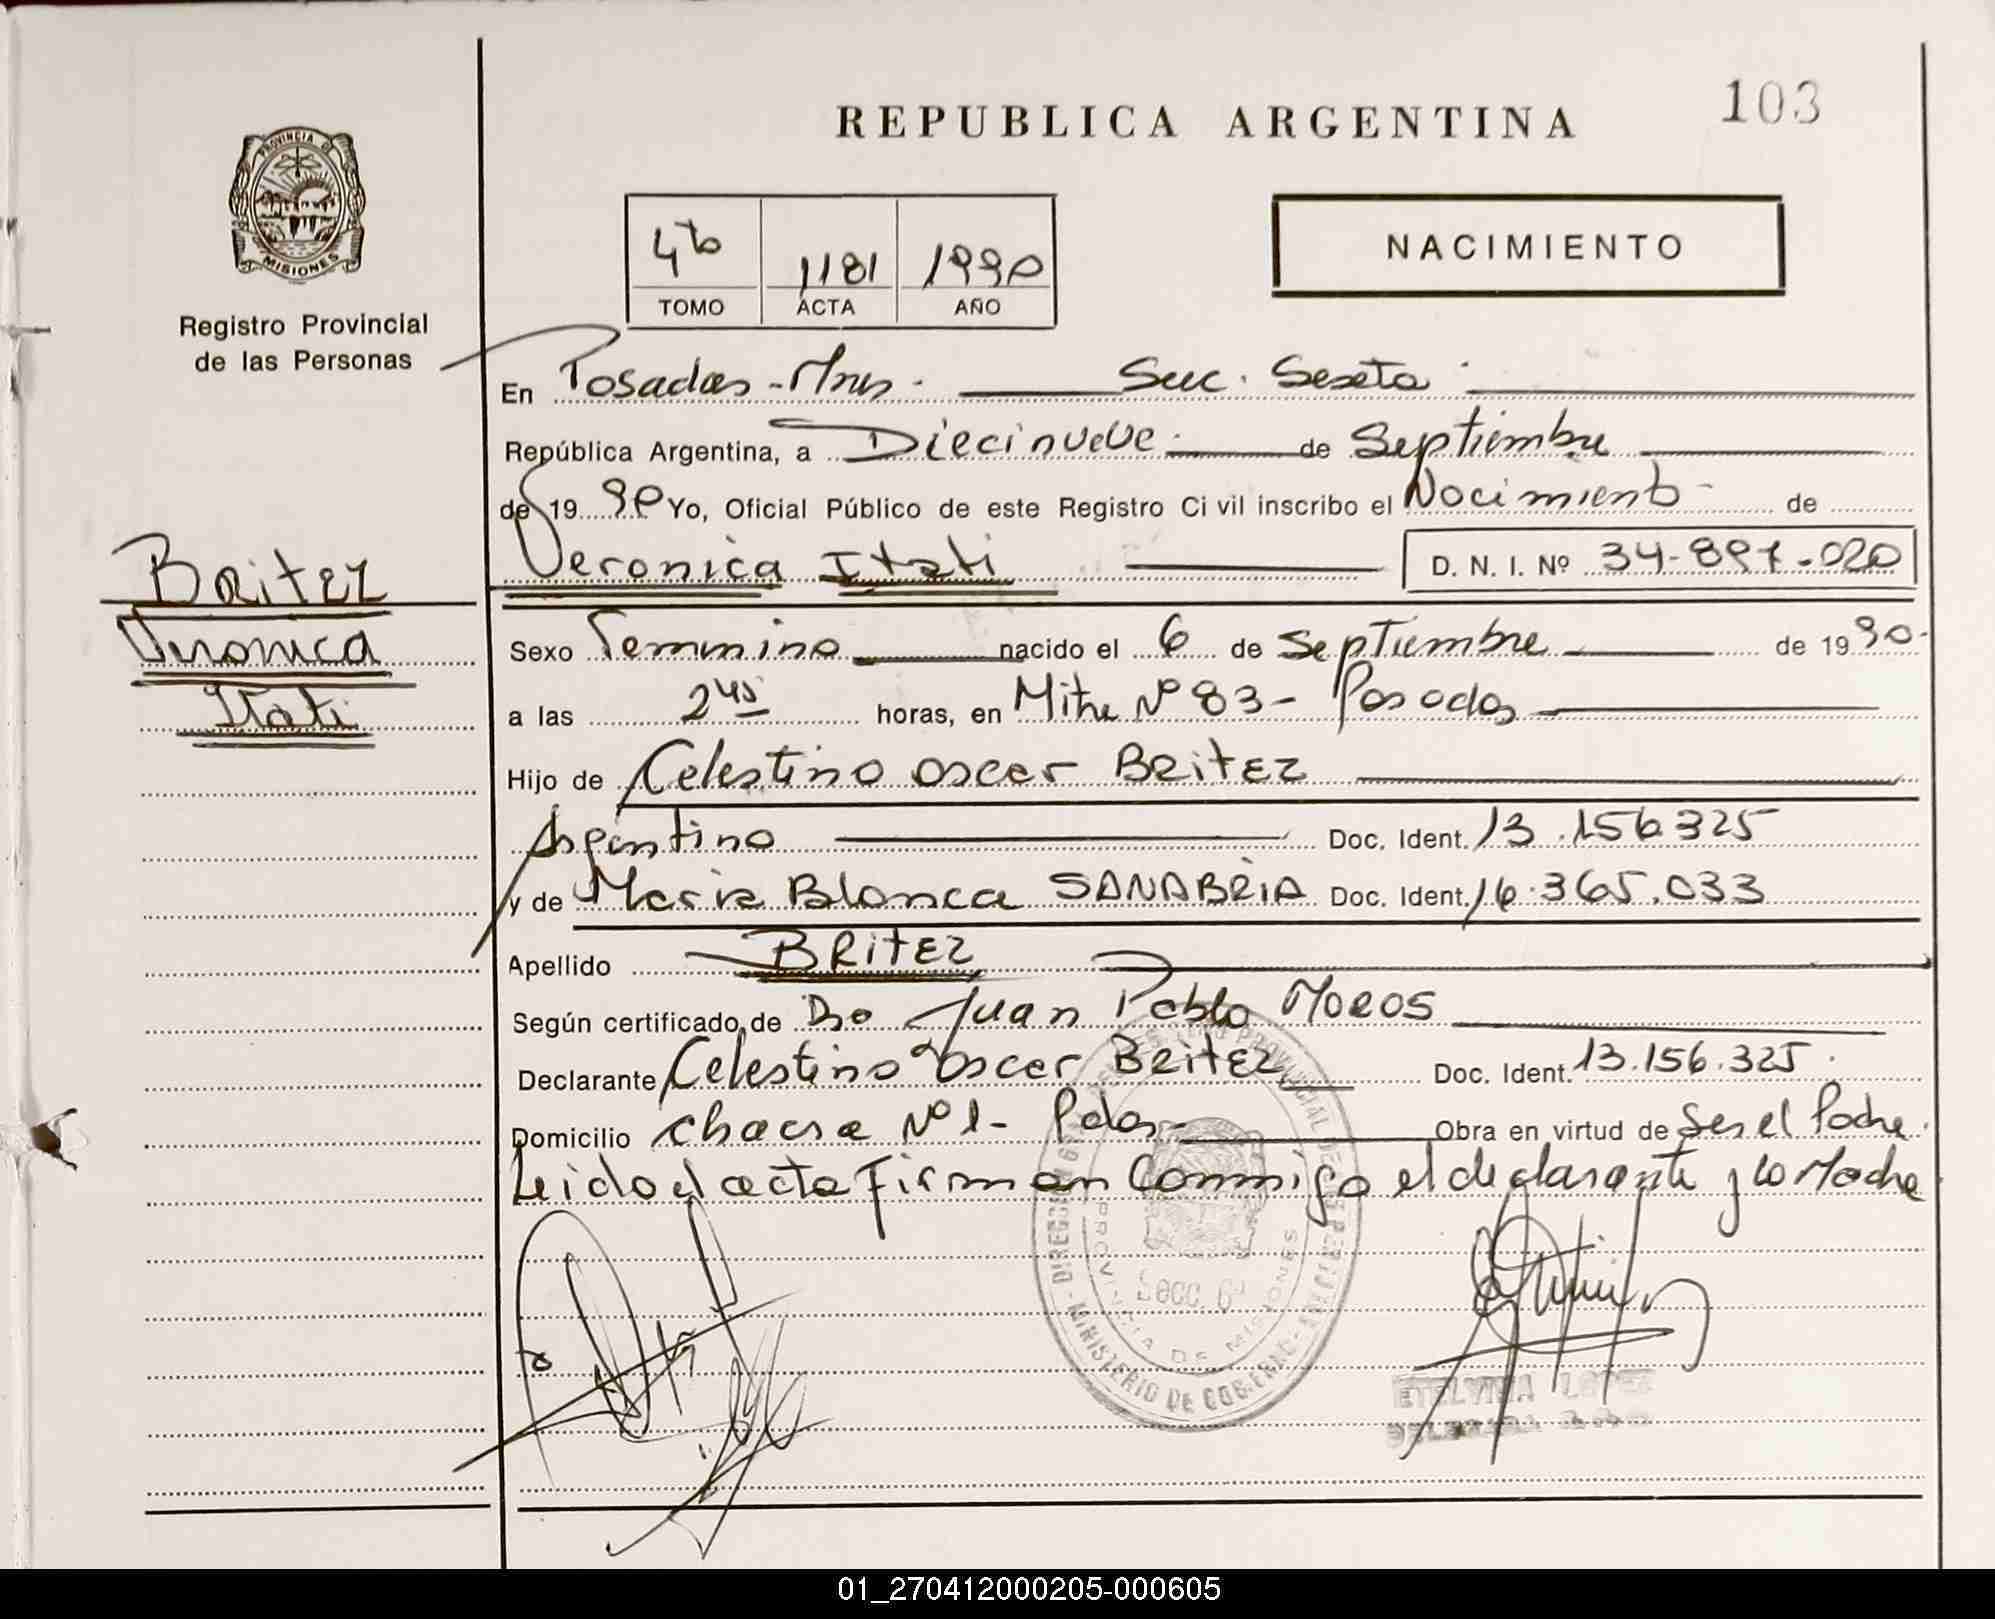 REPUBLICA ARGENTINA
103
PROVINCIA DE MISIONES
Registro Provincial
de las Personas
4to 1181 1990
TOMO ACTA AÑO
NACIMIENTO
En Posadas - Mnes. Secc. Sexta
República Argentina, a Diecinueve de Septiembre
de 19 90 Yo, Oficial Público de este Registro Civil inscribo el Nacimiento de
Veronica Itati D. N. I. Nº 34-897-020
Britez
Veronica
Itati
Sexo Femenino nacido el 6 de Septiembre de 19 90
a las 2 45 horas, en Mitre Nº 83 - Posadas
Hijo de Celestino Oscar Britez
Argentino Doc. Ident. 13.156.325
y de Maria Blanca SANABRIA Doc. Ident. 16.365.033
Apellido BRITEZ
Según certificado de Dro Juan Pablo Moros
Declarante Celestino Oscar Britez Doc. Ident. 13.156.325.
Domicilio Chacra Nº 1 - Pdas - Obra en virtud de Ser el Padre.
Leido el acta Firman Conmigo el declarante y la Madre
Secc. 6ª
PROVINCIA DE MISIONES
MINISTERIO DE GOBIERNO
ETELVINA LOPEZ
01_270412000205-000605